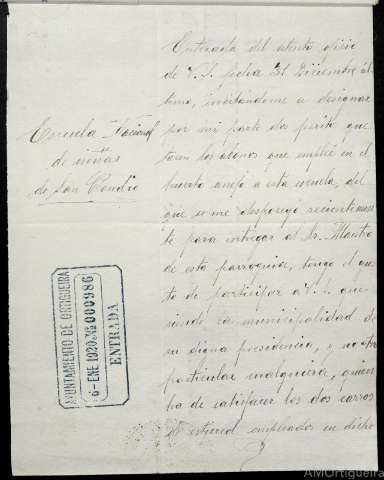 Escuela Nacional
de niñas
de San Claudio
AYUNTAMIENTO DE ORTIGUEIRA
6-ENE 1920 000986
ENTRADA
Enterada del atento oficio
de V. S. fecha 31 Diciembre úl-
timo, invitándome a designar
por mi parte da perito que
tasen los abonos que empleé en el
huerto anejo a esta escuela, del
que se me desposeyó recientemen-
te para entregar al Sr. Maestro
de esta parroquia, tengo el gus-
to de participar a V. S. que
siendo la municipalidad de
su digna presidencia, y no
particular cualquiera, quien
ha de satisfacer los dos carros
de estiercol empleados en dicho
AMOrtigueira